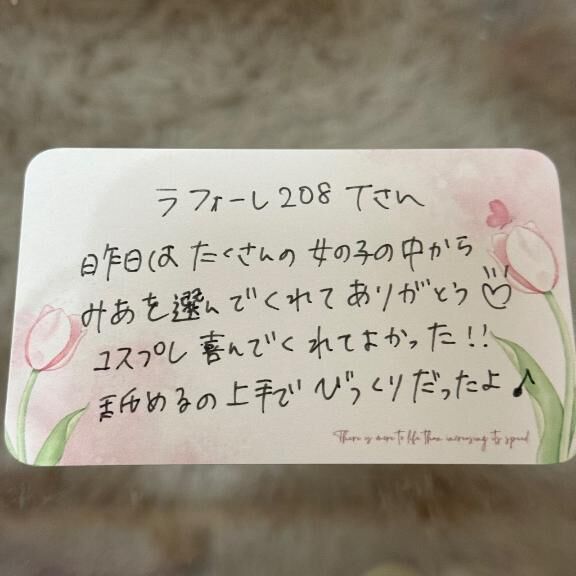 ラフォーレ208 Tさん
昨日は たくさんの 女の子の中から
みあを選んでくれて ありがとう♡
コスプレ 喜んでくれてよかった!!
舐めるの上手で びっくりだったよ♪
There is more to life than increasing its speed